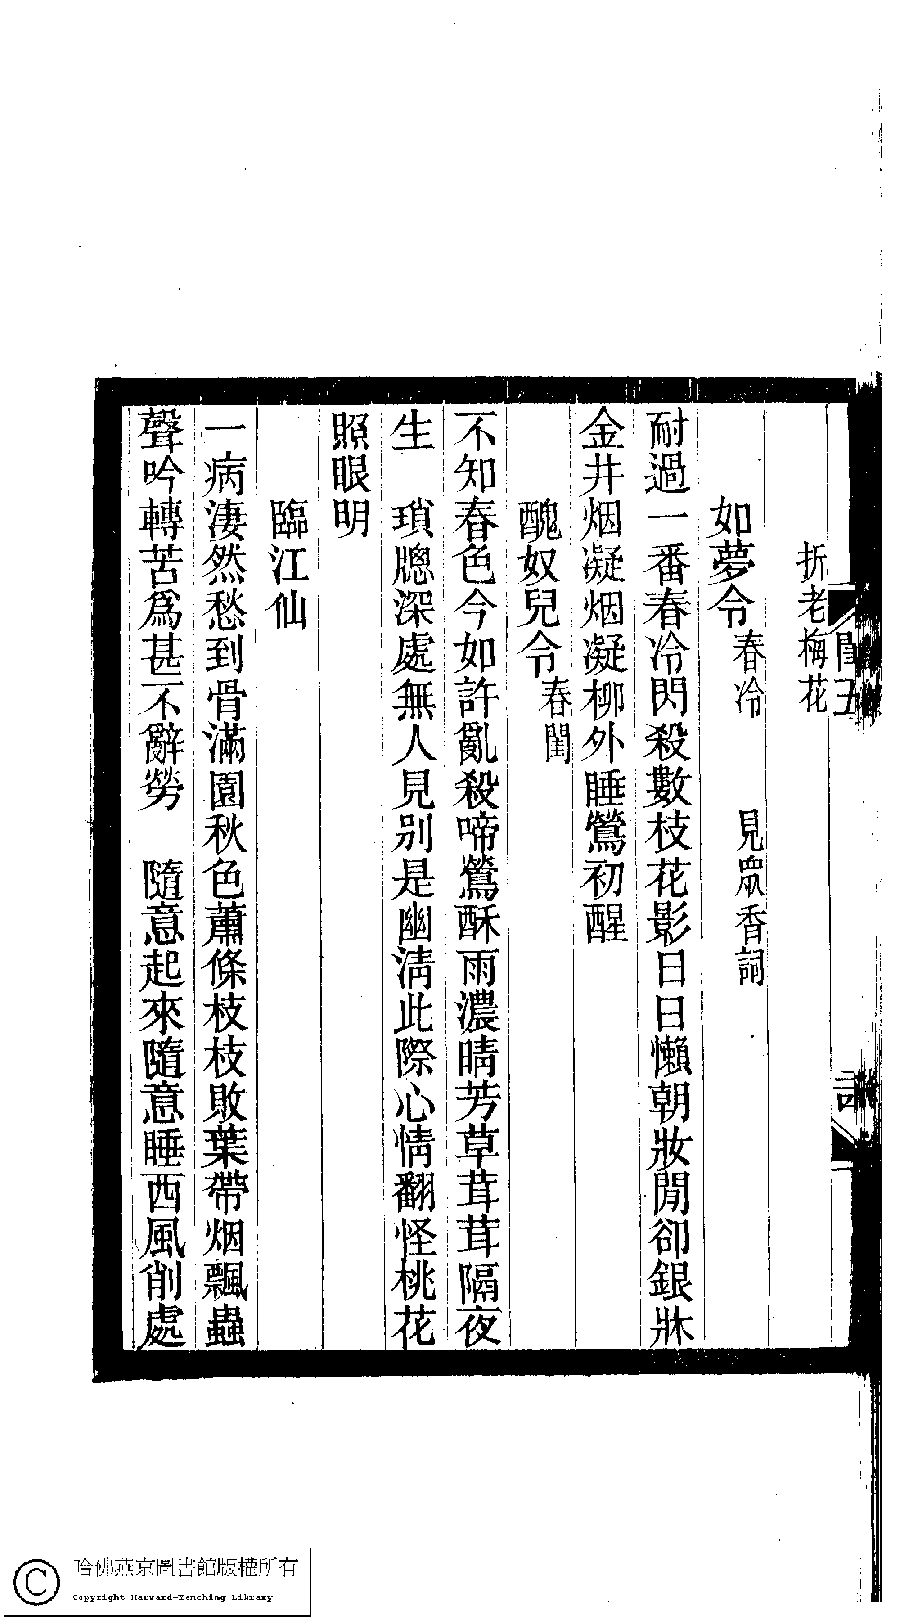 折老梅花
如夢令春冷　見眾香詞
耐過一番春冷閃殺數枝花影日日懶朝妝閒卻銀牀
金井烟凝烟凝柳外睡鶯初醒
醜奴兒令春閨
不知春色今如許亂殺啼鶯酥雨濃晴芳草茸茸隔夜
生　瑣牕深處無人見別是幽淸此際心情翻怪桃花
照眼明
臨江仙
一病淒然愁到骨滿園秋色蕭條枝枝敗葉帶烟飄蟲
聲吟轉苦爲甚不辭勞　隨意起來隨意睡西風削處
哈佛燕京圖書館版權所有
Copyright Harvard-Yenching Library